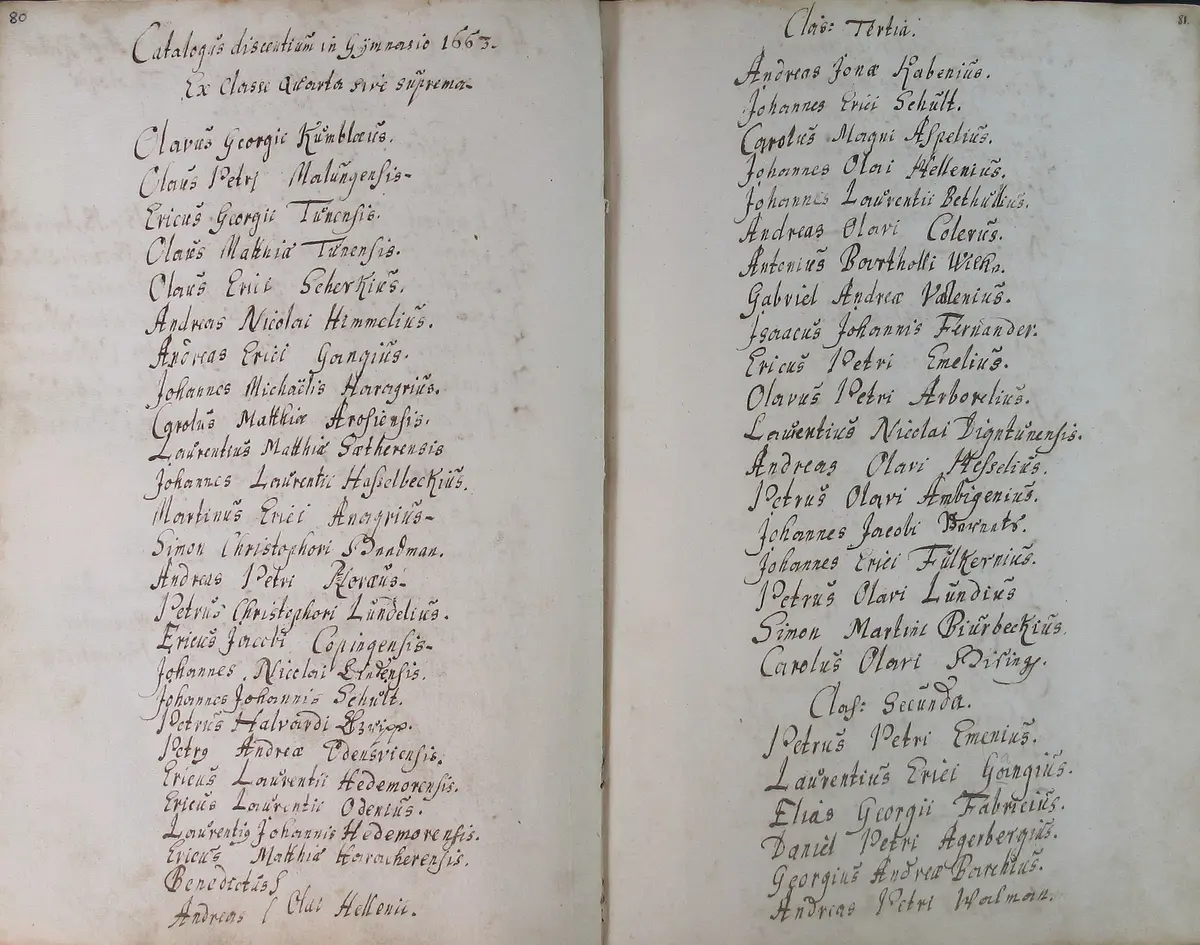 80
Catalogus discentium in Gymnasio 1663.
Ex Classe Quarta sive suprema
Olavus Georgii Kumblæus.
Olaus Petri Malungensis
Ericus Georgii Tunensis.
Olaus Matthiæ Tunensis.
Olaus Erici Scherkius.
Andreas Nicolai Himmelius.
Andreas Erici Gangius.
Johannes Michaëlis Haragrius.
Carolus Matthiæ Arosiensis.
Laurentius Matthiæ Sætherensis
Johannes Laurentii Hasselbeckius.
Martinus Erici Anagrius
Simon Christophori
Andreas Petri
Petrus Christophori Lundelius.
Ericus Jacobi Copingensis
Johannes Nicolai
Johannes Johannis Schult.
Petrus Halvardi
Petrg Andreæ Odensviensis.
Ericus Laurentii Hedemorensis.
Ericus Laurentii Odenius.
Laurentig Johannis Hedemorensis.
Ericus Matthiæ Haracherensis.
Benedictus
Andreas Olai Hellenii.
81
Clas: Tertia.
Andreas Jonæ Rabenius.
Johannes Erici Schult.
Carolus Magni Aspelius.
Johannes Olai Hellenius.
Johannes Laurentii Bethullius.
Andreas Olavi Colerus.
Antonius Bartholli
Gabriel Andreæ Valenius.
Isaacus Johannis Fernander.
Ericus Petri Emelius.
Olavus Petri Arborelius.
Laurentius Nicolai Digntunensis.
Andreas Olavi Hesselius.
Petrus Olavi Ambigenius.
Johannes Jacobi
Johannes Erici Fulkernius.
Petrus Olavi Lundius
Simon Martini Biurbeckius.
Carolus Olavi
Clas: Secunda.
Petrus Petri Emenius.
Laurentius Erici Gangius.
Elias Georgii Fabricius.
Daniel Petri Agerbergius.
Georgius Andreæ Barchius.
Andreas Petri Walman.